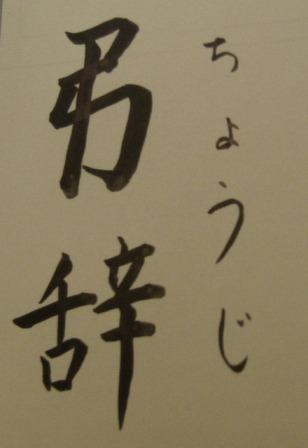 弔辞
ちょうじ